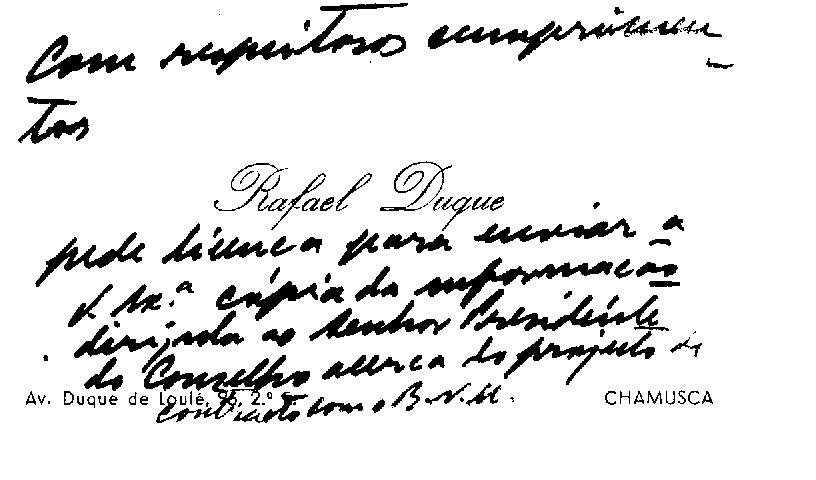 Com respeitosos cumprimen-
tos
Rafael Duque
pede licença para enviar a
V. Ex.ª cópia da informação
dirigida ao Senhor Presidente
do Conselho acerca do projecto de
Av. Duque de Loulé, 95, 2.º CHAMUSCA
contracto com o B.N.U.